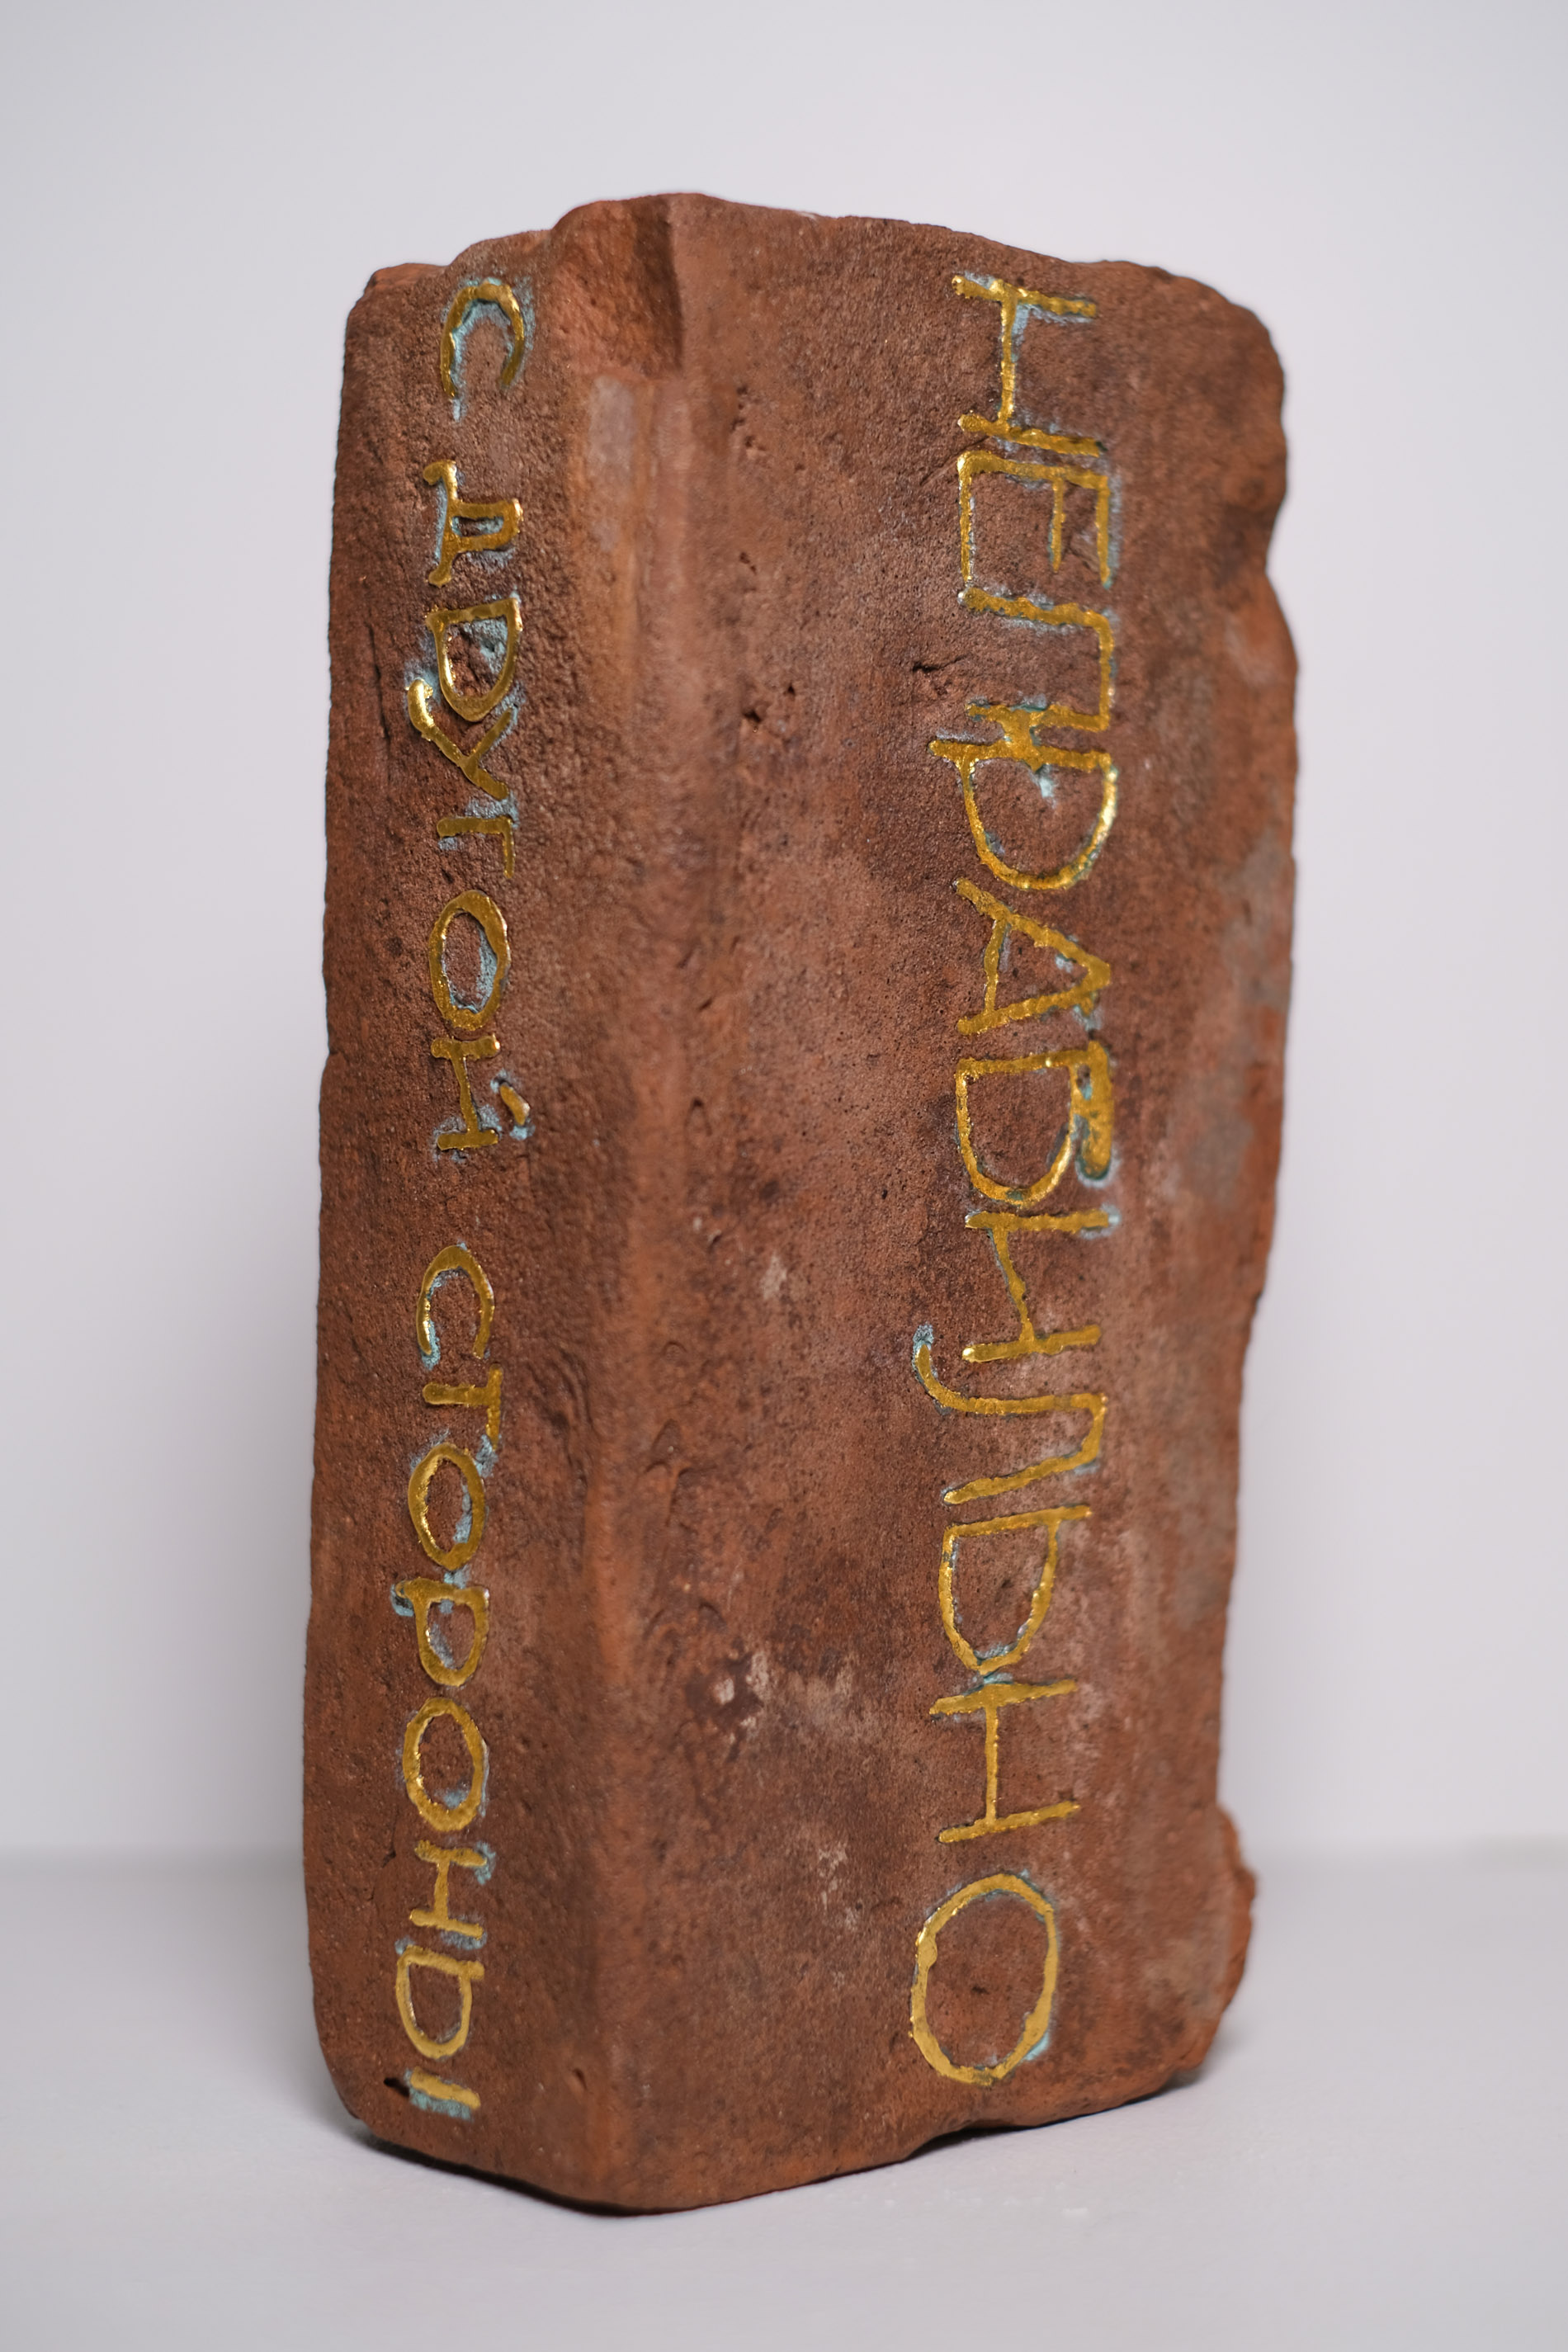 С ДРУГОЙ СТОРОНЫ
НЕПРАВИЛЬНО